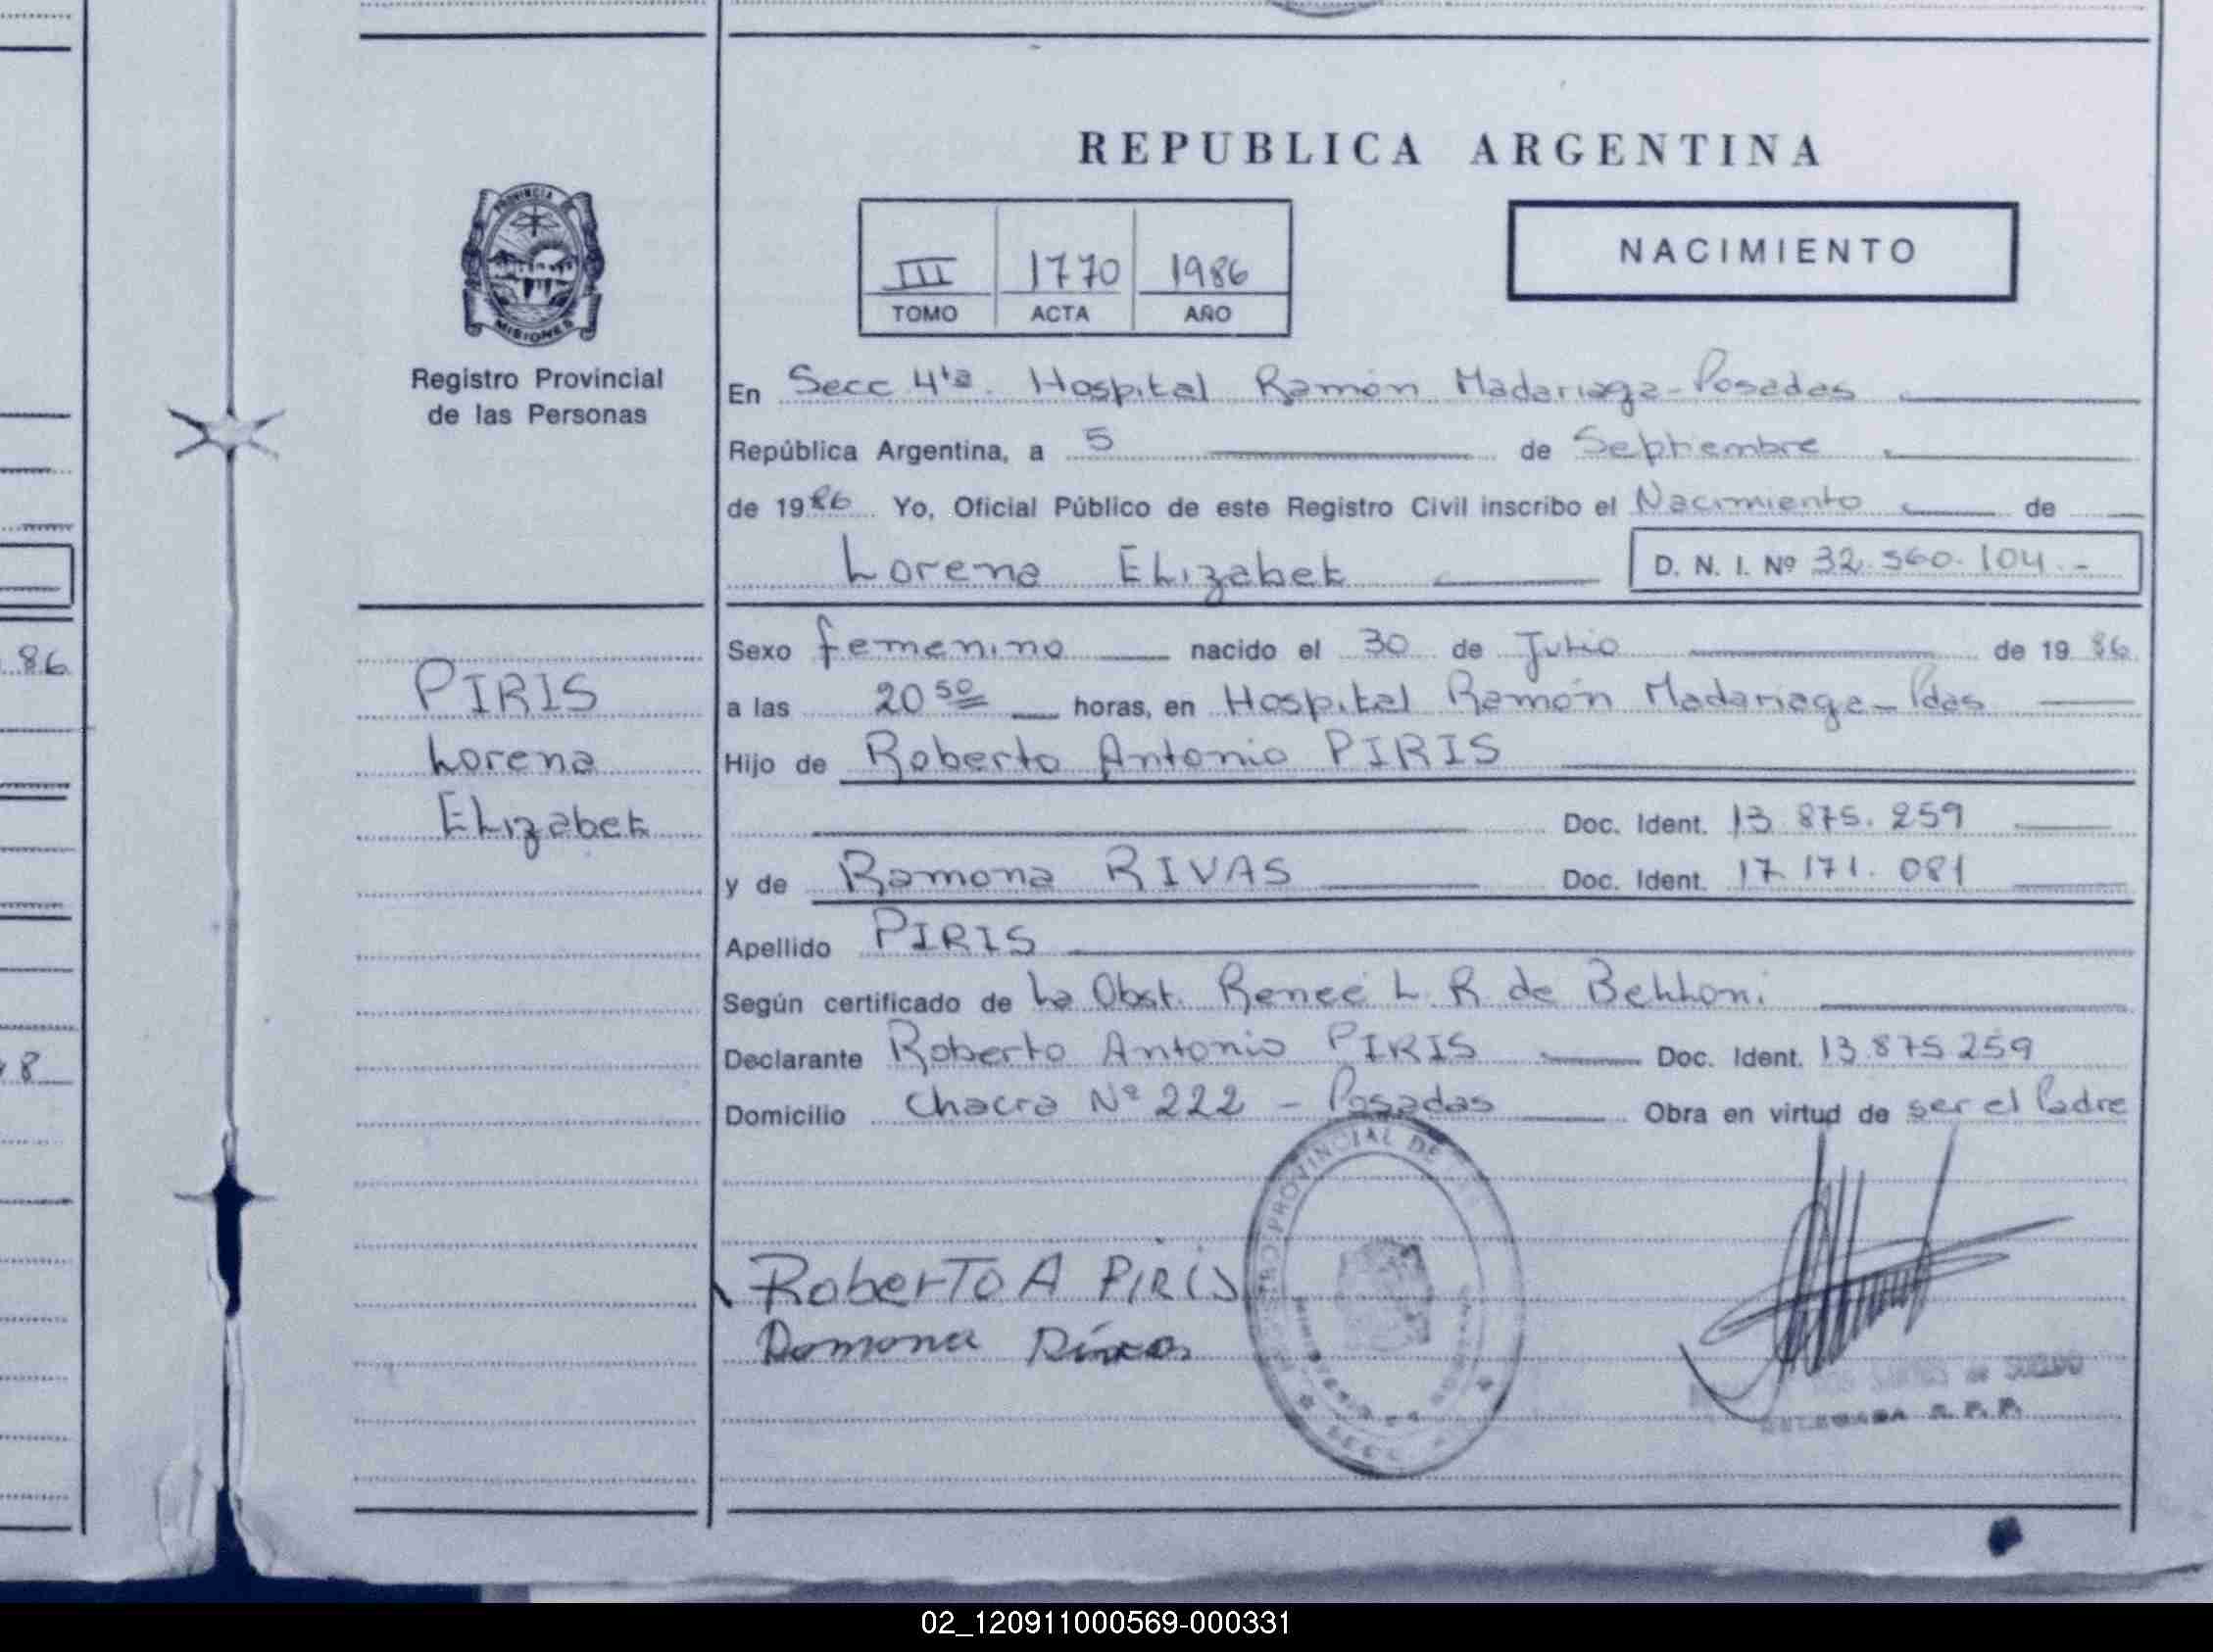 REPUBLICA ARGENTINA
PROVINCIA DE
MISIONES
Registro Provincial
de las Personas
III 1770 1986
TOMO ACTA AÑO
NACIMIENTO
En Secc 4ta. Hospital Ramón Madariaga - Posadas
República Argentina, a 5 de Septiembre
de 1986 Yo, Oficial Público de este Registro Civil inscribo el Nacimiento de
Lorena ELizabet D. N. I. Nº 32.360.104.-
86
PIRIS
Lorena
ELizabet
Sexo femenino nacido el 30 de Julio de 1986
a las 20 50 horas, en Hospital Ramón Madariaga - Pdas
Hijo de Roberto Antonio PIRIS
Doc. Ident. 13.875.259
y de Ramona RIVAS Doc. Ident. 17.171.081
Apellido PIRIS
Según certificado de La Obst. Renée L. R. de Belloni
Declarante Roberto Antonio PIRIS Doc. Ident. 13.875259
8
Domicilio Chacra Nº 222 - Posadas Obra en virtud de ser el Padre
PROVINCIAL DE
RoberTO A PIRIS
Ramona Rivas
DELEGADA R. P. P.
02_120911000569-000331